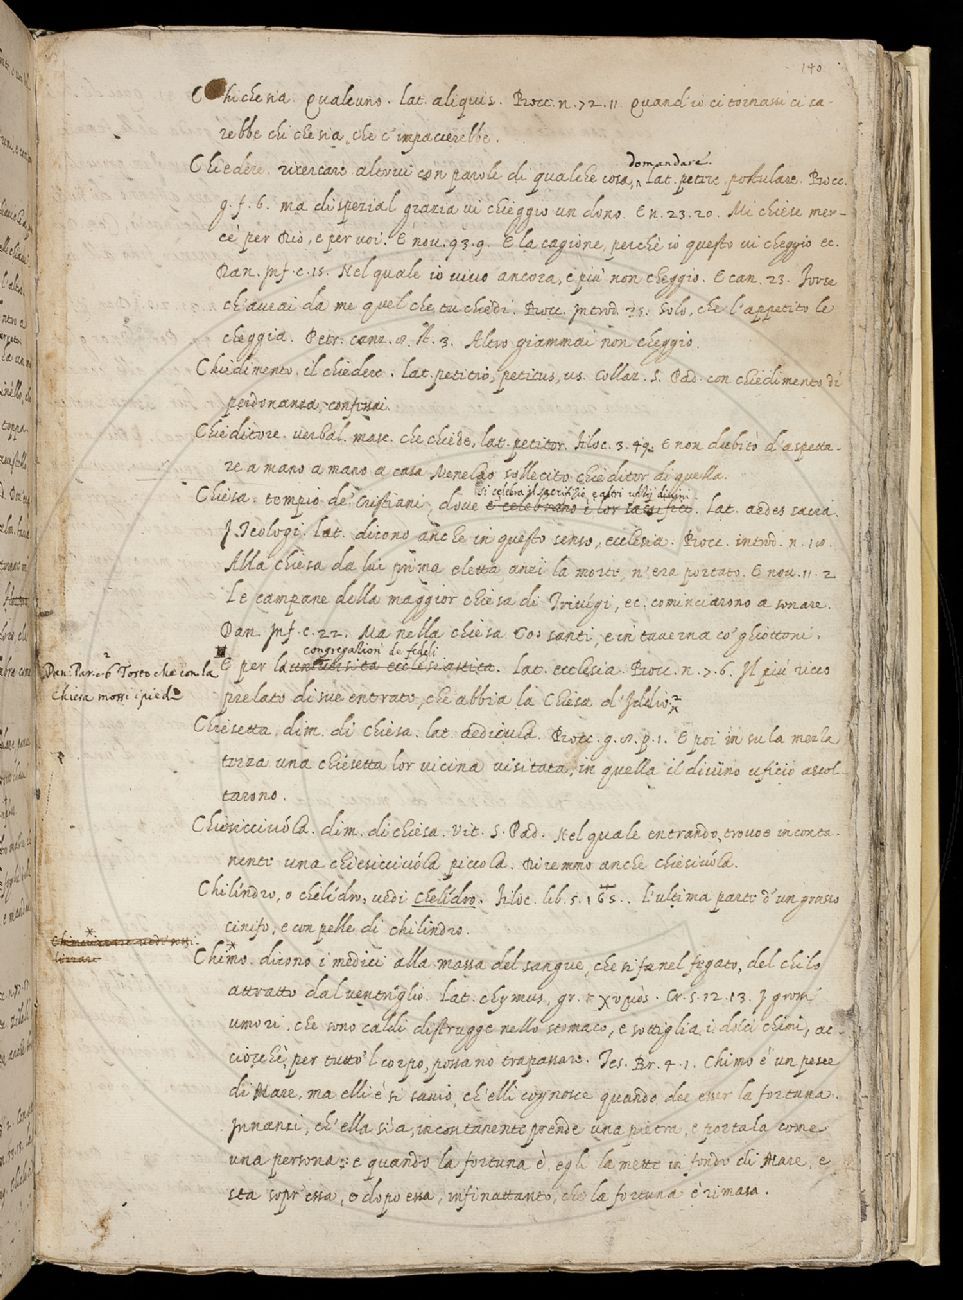 140
Chichesia. Qualcuno. lat. aliquis. Bocc. n. 72. 11. Quand' io ci tornassi ci sa-
rebbe chi che sia, che c' impacierebbe.
domandare.
Chiedere. ricercare altrui con parole di qualche cosa, lat. petere postulare. Bocc.
g. f. 6. ma di spezial grazia vi chieggio un dono. E n. 23. 20. Mi chiese mer-
cè per Dio, e per voi. E nov. 93. 9. E la cagione, perchè io questo vi cheggio ec.
Dan. Inf. c. 15. Nel quale io vivo ancora, e più non cheggio. E can. 23. Forse
ch' avrai da me quel che tu chiedi. Bocc. Introd. 35. Solo, che l' appetito le
cheggia. Petr. canz. 8. 3. Altro giammai non cheggio.
Chiedimento. il chiedere. lat. petitio, petitus, us. Collaz. S. Pad. con chiedimento di
perdonanza, confessi.
Chieditore. verbal. masc. che chiede, lat. petitor. Filoc. 3. 49. E non dubitò d' aspetta-
re a mano a mano a casa Menelao sollecito chieditor di quella.
si celebra il sacrifizio, e altri ufizij divini
Chiesa. tempio de' Cristiani, dove e celebrano i lor sacrifici. Lat. aedes sacra.
I Teologi. lat. dicono anche in questo senso, ecclesia. Bocc. introd. n. 18.
Alla chiesa da lui prima eletta anzi la morte, n' era portato. E nov. 11. 2
Le campane della maggior chiesa di Trivigi, ec. cominciarono a sonare.
Dan. Inf. c. 22. Ma nella chiesa Co' santi, e in taverna co' ghiottoni.
congregazion de' fedeli
E per la università ecclesiastica. Lat. ecclesia. Bocc. n. 7. 6. Il più ricco
Dan. Par. 26 Tosto che con la
Chiesa mossi i piedi
prelato di sue entrate, che abbia la Chiesa d' Iddio
Chiesetta, dim. di chiesa. lat. aedicula. Bocc. g. 8. p. 1. E poi in su la mezza
terza una chiesetta lor vicina visitata, in quella il divino uficio ascol-
tarono.
Chiesicciuóla. dim. di chiesa. Vit. S. Pad. Nel quale entrando, trovoe inconta-
nente una chiesicciuóla piccola. Diremmo anche chiesiuóla.
Chilindro, o chelidro, vedi Chelidro. Filoc. lib. 5. 165. L' ultima parte d' un grosso
cinifo, e con pelle di chilindro.
Chimo. dicono i medici alla massa del sangue, che si fa nel fegato, del chilo
attratto dal ventriglio. Lat. chymus, gr. χυμὸς. Cr. 5. 12. 13. I grossi
umori, che sono caldi distrugge nello stomaco, e sottiglia i dolci chimi, ac-
ciocchè, per tutto 'l corpo, possano trapassare. Tes. Br. 4. 1. Chimo è un pesce
di Mare, ma elli è sì savio, ch' elli cognosce quando dee esser la fortuna.
Innanzi, ch' ella sia, incontanente prende una pietra, e portala come
una persona: e quando la fortuna è, egli la mette in fondo di Mare, e
sta sopr' essa, e dopo essa, infinattanto, che la fortuna è rimasa.